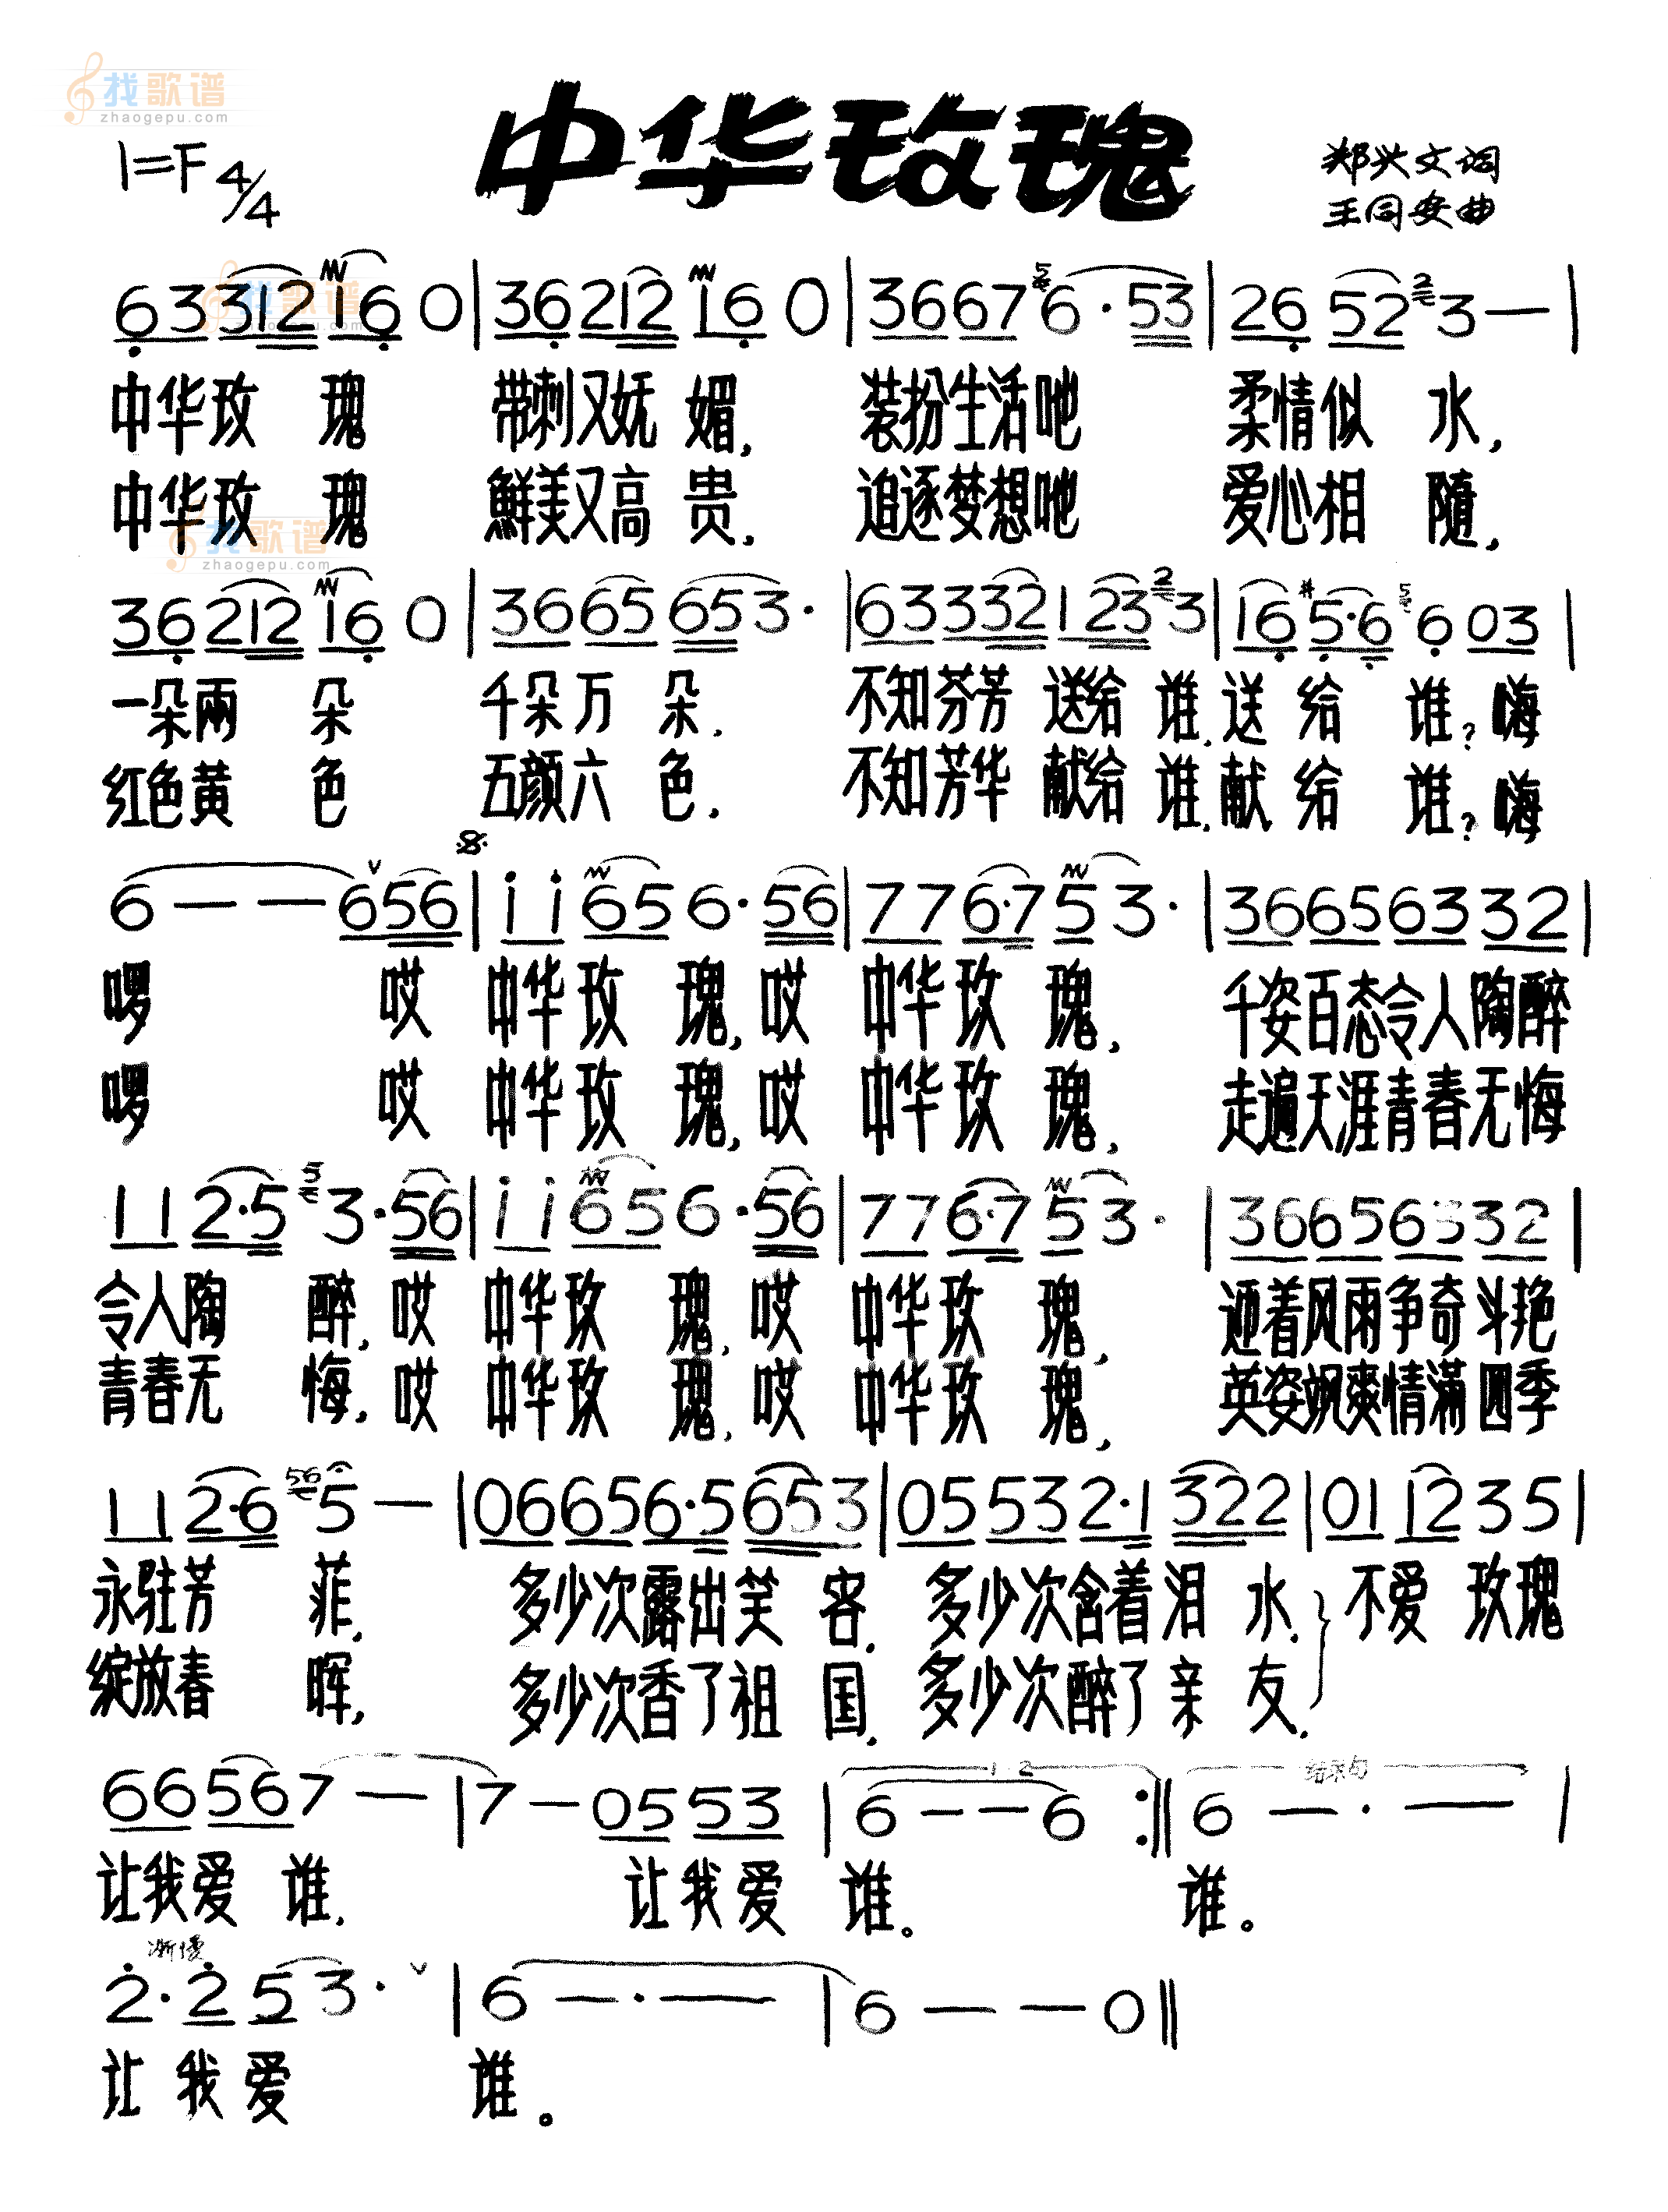 找歌谱
zhaogepu.com
中华玫瑰
1=F 4/4
郑兴文词
王同安曲
6 3 3 1 2 1 6 0 | 3 6 2 1 2 1 6 0 | 3 6 6 7 5 6 · 5 3 | 2 6 5 2 2 3 — |
中华玫 瑰 带刺又妩 媚, 装扮生活吔 柔情似 水,
中华玫 瑰 鮮美又高 贵, 追逐梦想吔 爱心相 隨,
找歌谱
zhaogepu.com
3 6 2 1 2 1 6 0 | 3 6 6 5 6 5 3 · | 6 3 3 3 2 1 2 3 2 3 | 1 6 #5 · 6 5 6 0 3 |
一朵兩 朵 千朵万 朵. 不知芬芳 送给 谁,送 给 谁?嗨
红色黄 色 五颜六 色. 不知芳华 献给 谁,献 给 谁?嗨
6 — — 6 5 6 | 1 1 6 5 6 · 5 6 | 7 7 6 · 7 5 3 · | 3 6 6 5 6 3 3 2 |
啰 哎 中华玫 瑰,哎 中华玫 瑰, 千姿百态令人陶醉
啰 哎 中华玫 瑰,哎 中华玫 瑰, 走遍天涯青春无悔
1 1 2 · 5 5 3 · 5 6 | 1 1 6 5 6 · 5 6 | 7 7 6 · 7 5 3 · | 3 6 6 5 6 3 3 2 |
令人陶 醉,哎 中华玫 瑰,哎 中华玫 瑰, 迎着风雨争奇斗艳
青春无 悔,哎 中华玫 瑰,哎 中华玫 瑰, 英姿飒爽情滿四季
1 1 2 · 6 5 6 5 — | 0 6 6 5 6 · 5 6 5 3 | 0 5 5 3 2 · 1 3 2 2 | 0 1 1 2 3 5 |
永驻芳 菲, 多少次露出笑 容, 多少次含着泪 水. 不爱 玫瑰
绽放春 晖, 多少次香了祖 国, 多少次醉了亲 友.
6 6 5 6 7 — | 7 — 0 5 5 3 | 1 2 6 — — 6 :‖ 结束句 6 — · — |
让我爱 谁, 让我爱 谁。 谁。
渐慢
2 · 2 5 3 · ∨ | 6 — · — | 6 — — 0 ‖
让 我 爱 谁。